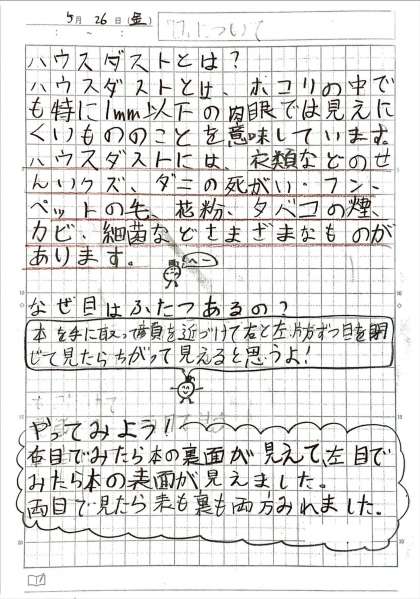 5月26日(金)
目について
ハウスダストとは?
ハウスダストとは、ホコリの中で
も特に1mm以下の肉眼では見えに
くいもののことを意味しています。
ハウスダストには、衣類などのせ
んいクズ、ダニの死がい・フン、
ペットの毛、花粉、タバコの煙、
カビ、細菌などさまざまなものが
あります。
へー
なぜ目はふたつあるの?
本を手に取って顔を近づけて右と左片方ずつ目を閉
じて見たらちがって見えると思うよ!
やってみよう!
右目でみたら本の裏面が見えて、左目で
みたら本の表面が見えました。
両目で見たら表も裏も両方みれました。